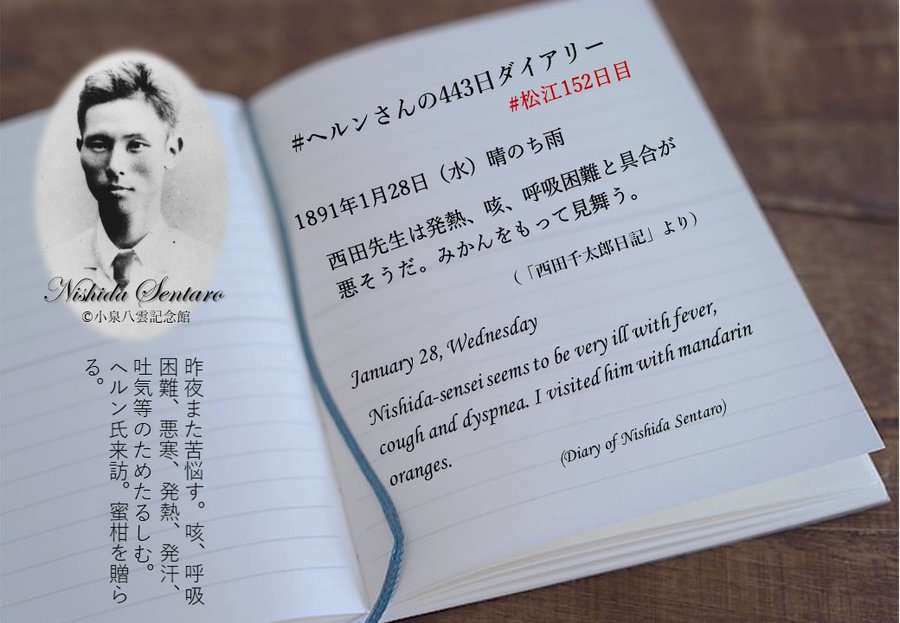 #ヘルンさんの443日ダイアリー
#松江152日目
1891年1月28日（水）晴のち雨
西田先生は発熱、咳、呼吸困難と具合が
悪そうだ。みかんをもって見舞う。
（「西田千太郎日記」より）
January 28, Wednesday
Nishida-sensei seems to be very ill with fever,
cough and dyspnea. I visited him with mandarin
oranges.
(Diary of Nishida Sentaro)
Nishida Sentaro
©小泉八雲記念館
昨夜また苦悩す。咳、呼吸
困難、悪寒、発熱、発汗、
吐気等のためたるしむ。
ヘルン氏来訪。蜜柑を贈ら
る。